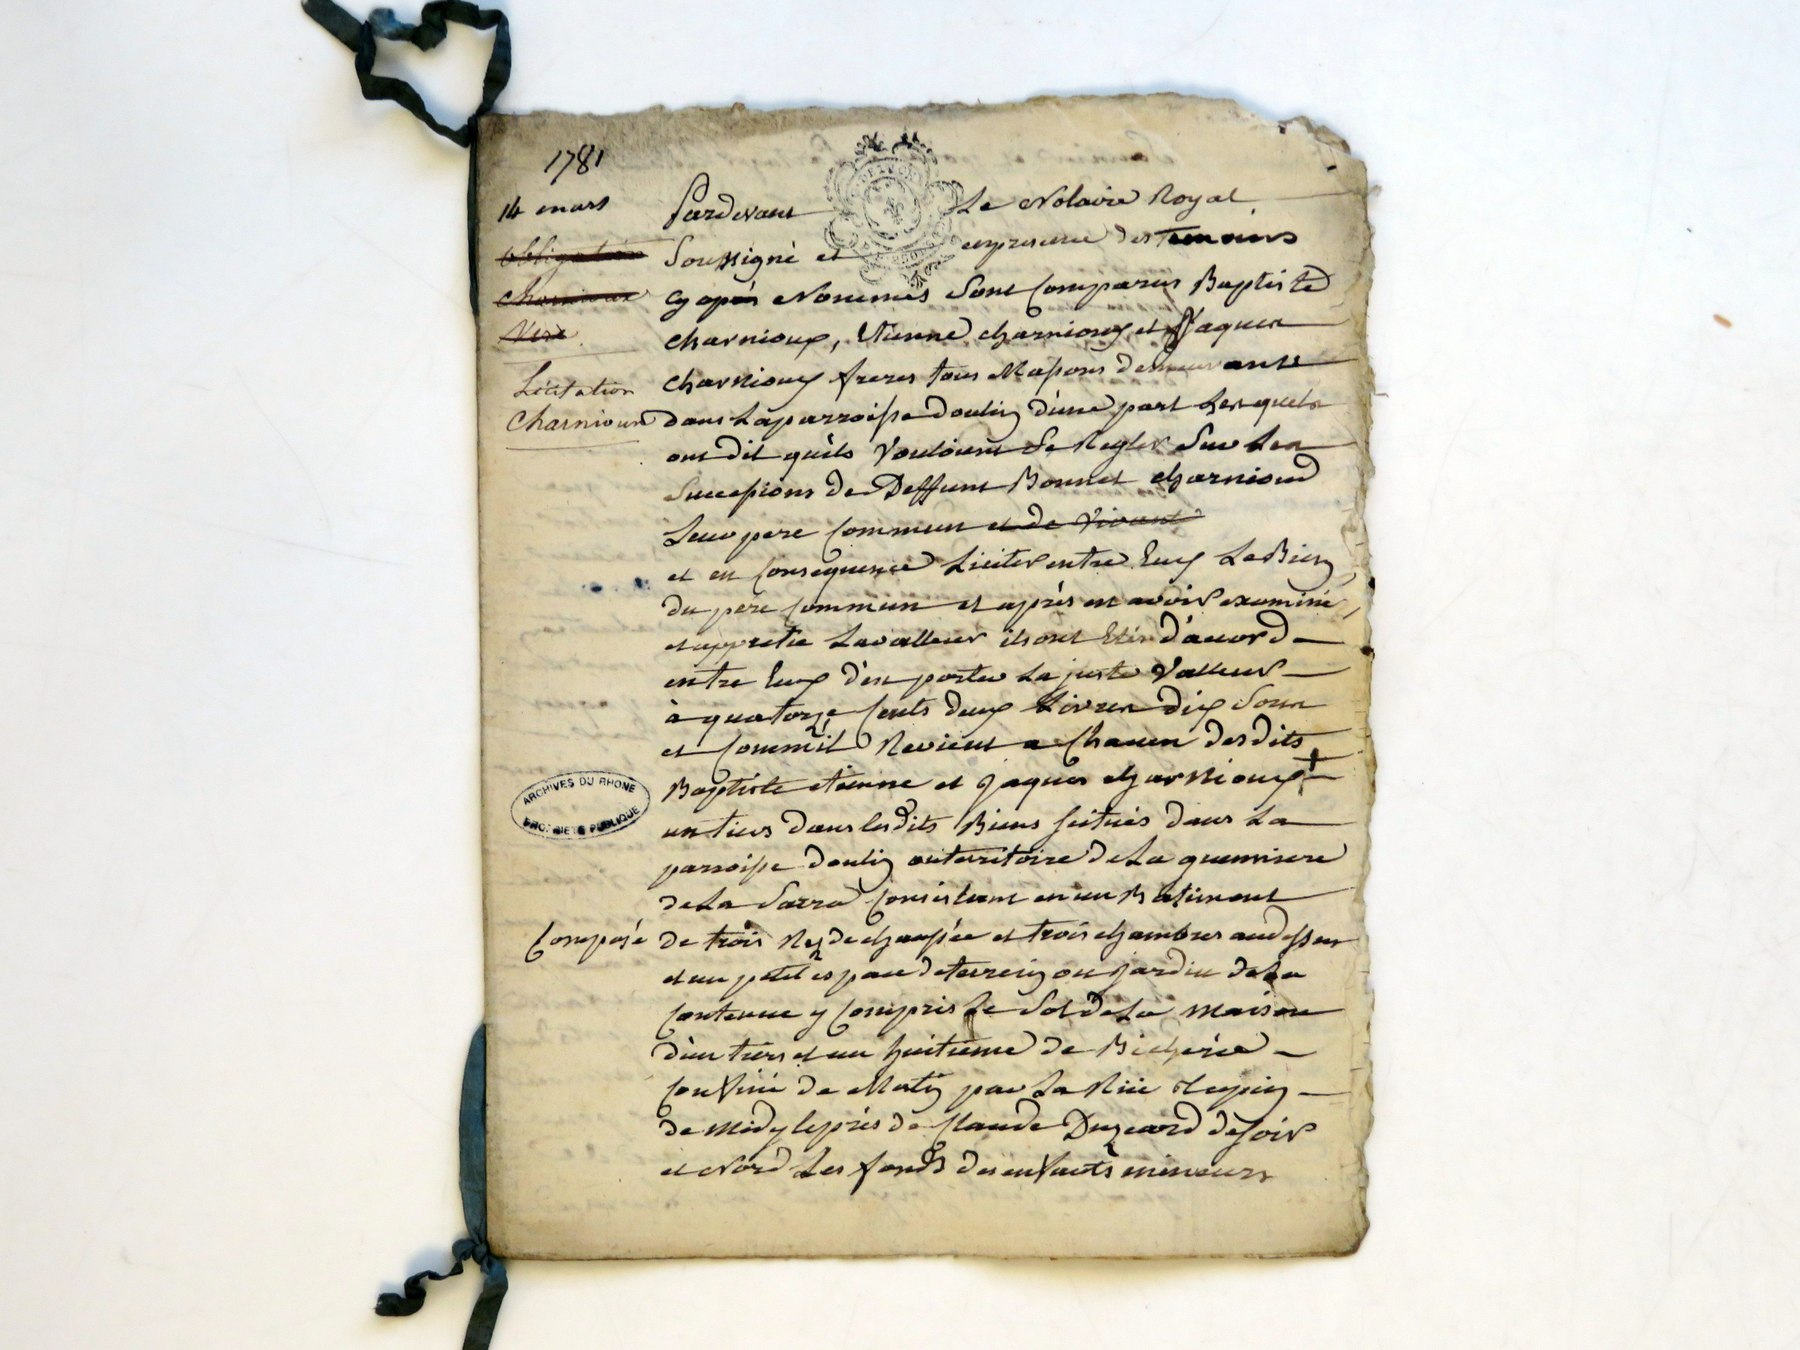 1781
14 mars
obligation
charnioux
Licitation
Charnioux
Pardevant Le Notaire Royal
Soussigné et en presence des temoins
cy aprés Nommés Sont Comparus Baptiste
charnioux, Etienne charnioux et Jaques
charnioux freres tous Massons demeurants
dans La parroisse doulin d'une part Lesquels
ont dit quils Vouloient Se Regler Sur Les
Successions de Deffunt Bonnet charnioux
Leur pere Commun et de Vivant
et en Consequence Liciter entre Eux Le Bien
du pere Commun et aprés en avoir examiné
et appretié La valleur ils ont Etés d'acord
entre Eux d'en porter La juste Valleur
à quatorze Cents deux Livres dix Sous
et Comme il Revient a Chacun desdits
Baptiste etienne et Jaques charnioux +
un tiers dans lesdits Biens scitués dans La
parroisse doulin au territoire de La
de La Sarra Consistant en un Batiment
Composé de trois Rez de chaussée et trois chambres au dessus
et un petit espace de terrein ou jardin de La
Contenue y Compris Le Sol de La maison
d'un tiers et un huitieme de Bicherée
Confiné de Matin par La Rüe
de Midy le prés de Claude Duzeard de Soir
et Nord Les fonds des enfants mineurs
ARCHIVES DU RHONE
PROPRIETE PUBLIQUE